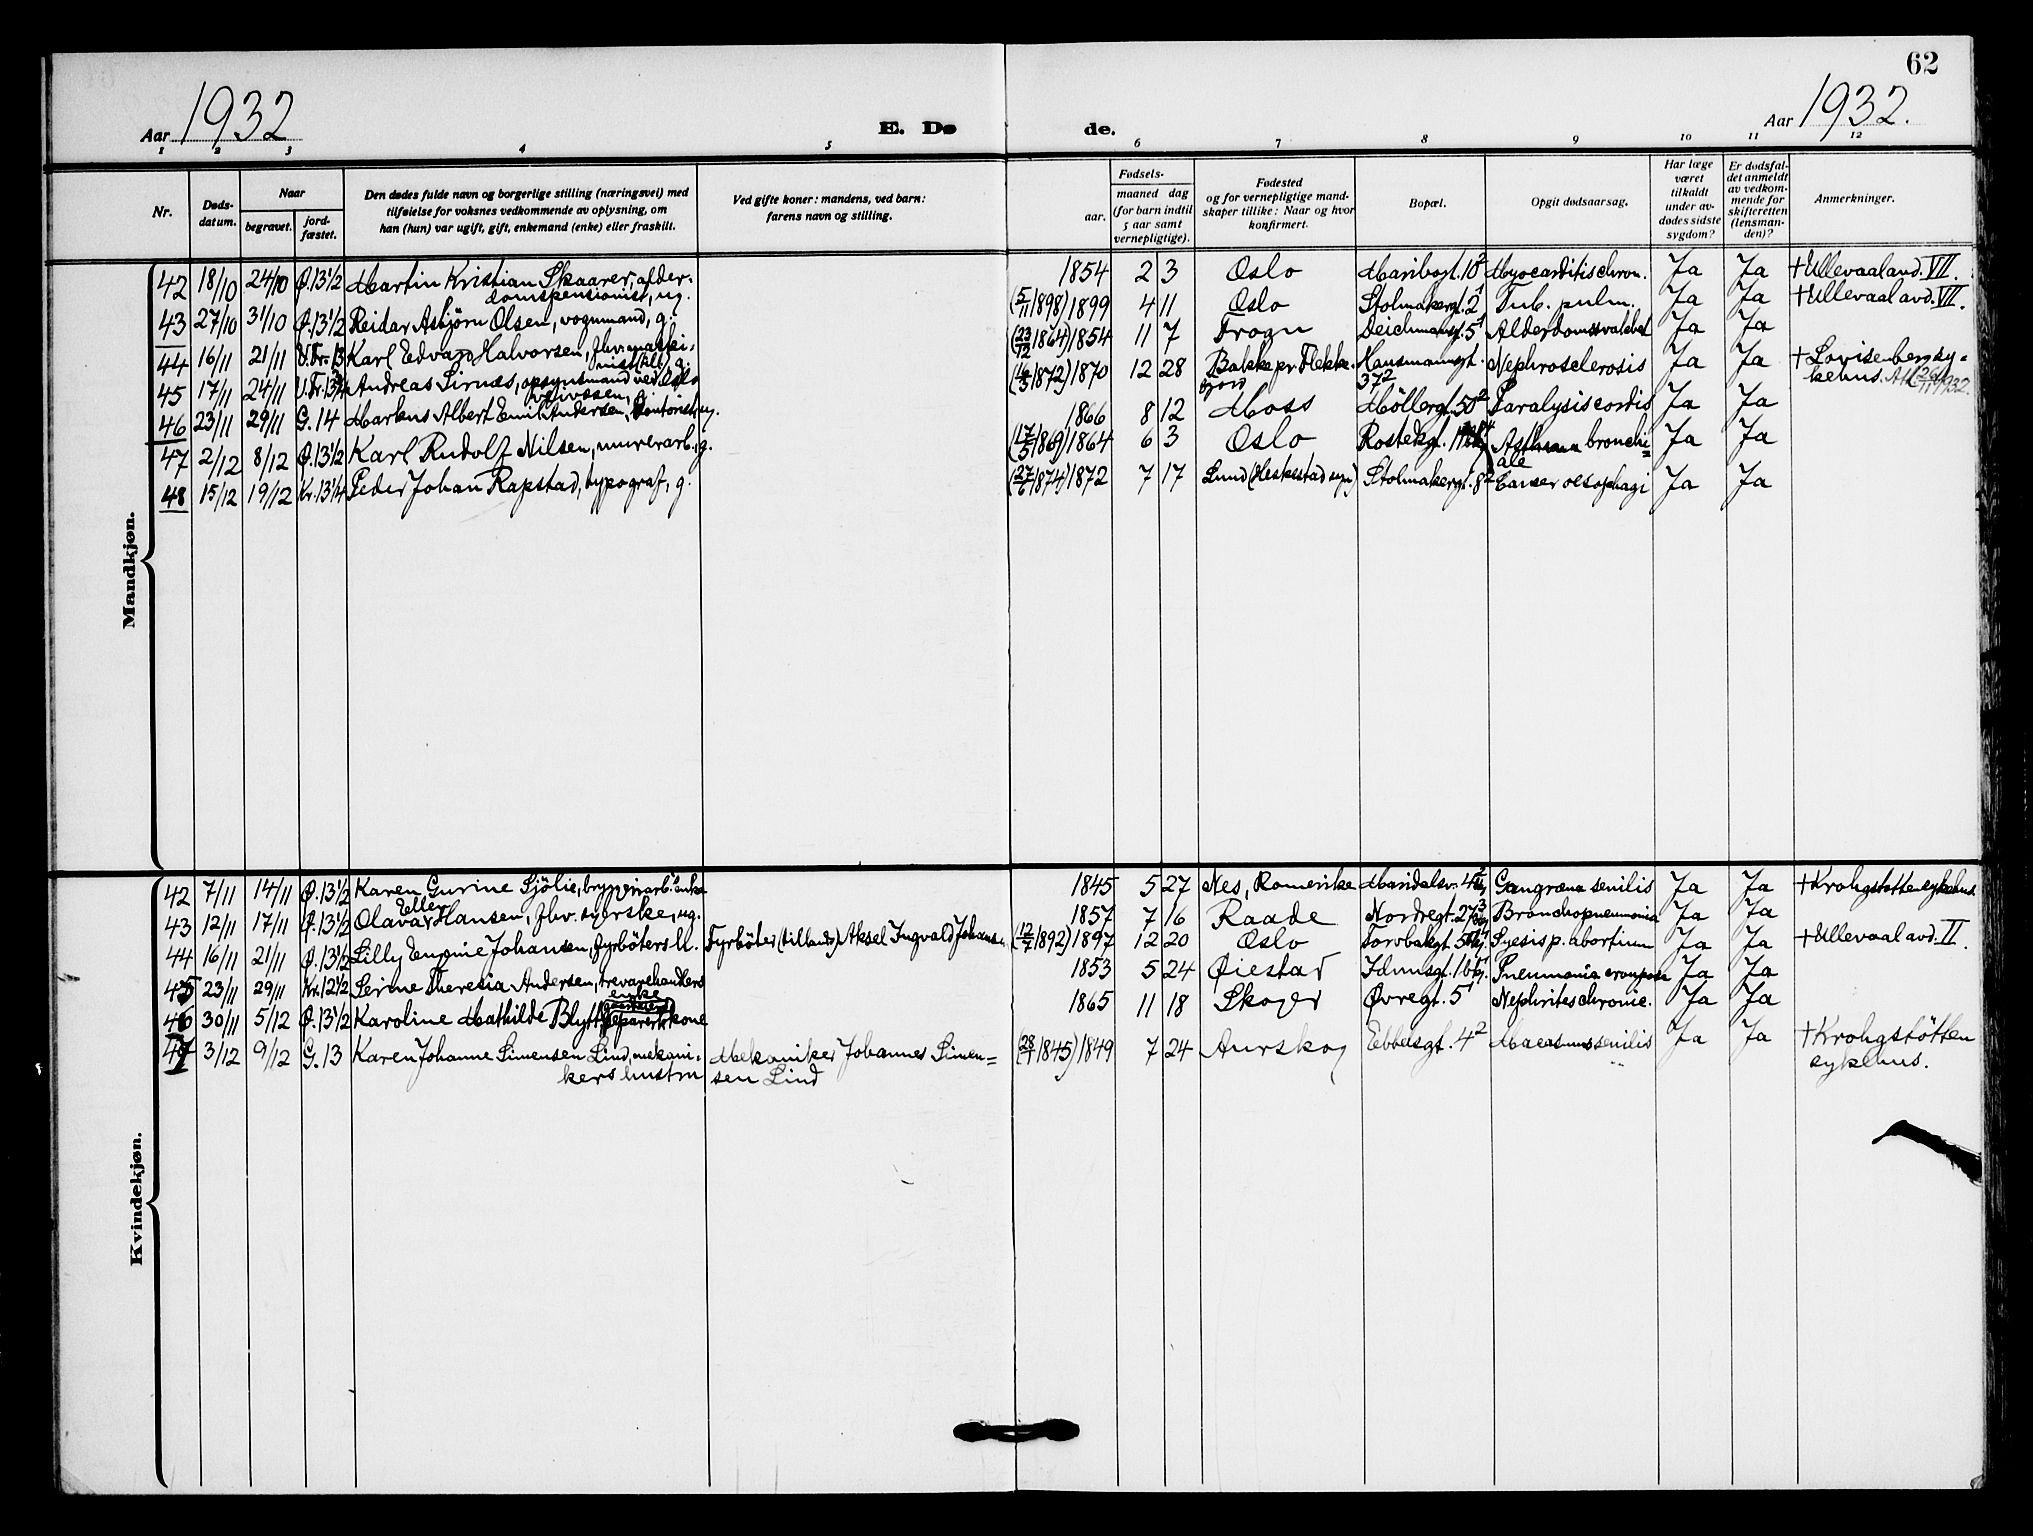 62
Aar 1932
E. Dø
de.
Aar 1932.
1 2 3 4 5 6 7 8 9 10 11 12
Nr.
Døds-
datum.
Naar
begravet.
jord-
fæstet.
Den dødes fulde navn og borgerlige stilling (næringsvei) med
tilføielse for voksnes vedkommende av oplysning, om
han (hun) var ugift, gift, enkemand (enke) eller fraskilt.
Ved gifte koner: mandens, ved barn:
farens navn og stilling.
Fødsels-
aar.
maaned dag
(for barn indtil
5 aar samt
vernepligtige).
Fødested
og for vernepligtige mand-
skaper tillike: Naar og hvor
konfirmert.
Bopæl.
Opgit dødsaarsag.
Har læge
været
tilkaldt
under av-
dødes sidste
sygdom?
Er dødsfal-
det anmeldt
av vedkom-
mende for
skifteretten
(lensman-
den)?
Anmerkninger.
Mandkjøn.
42 18/10 24/10 Ø.13½ Martin Kristian Skaarer, alder-
domspensionist, ug. 1854 2 3 Oslo Maribogt. 10² Myocarditis chron. Ja Ja + Ullevaal avd. VII.
43 27/10 31/10 Ø.13½ Reidar Asbjørn Olsen, vognmand, g. (5/11 1898) 1899 4 11 Oslo Stolmakergt. 2¹ Tub. pulm. Ja Ja + Ullevaal avd. VII.
44 16/11 21/11 V.Fr. 13 Karl Edvard Halvorsen, fhv. maski-
nist, g. (23/12 1864) 1854 11 7 Frogn Deichmansgt. 5¹ Alderdomssvakhet Ja Ja
45 17/11 24/11 Andreas Sirnæs, opsynsmand ved Oslo
(1872) 1870 12 28 Bakke pr Flekke-
fjord Hausmannsgt.
37² Nephrosclerosis Ja Ja + Lovisenberg sy-
kehus. 1932.
46 23/11 29/11 G. 14 Markus Albert Emil Andersen, kontorist, ug. 1866 8 12 Moss Møllergt. 50² Paralysis cordis Ja Ja
47 2/12 8/12 Ø.13½ Karl Rudolf Nilsen, murerarb., g. (17/5 1869) 1864 6 3 Oslo Rostedsgt. Asthma bronchi-
ale Ja Ja
48 15/12 19/12 Kr. 13¼ Peder Johan Rapstad, typograf, g. (27/6 1874) 1872 7 17 Lund (Heskestad sogn) Stolmakergt. 8² Cancer oesophagi Ja Ja
Kvindekjøn.
42 7/11 14/11 Ø.13½ Karen Gurine Sjölie, bryggeriarb.s enke 1845 5 27 Nes, Romerike Maridalsv. Gangræna senilis Ja Ja + Krohgstøtten sykehus
43 12/11 17/11 Ø.13½ Olava Hansen, fhv. syerske, ug. 1857 7 16 Raade Nordregt. Bronchopneumonia Ja Ja
Eller
44 16/11 21/11 Ø.13½ Lilly Eugenie Johansen, fyrbøters h. Fyrbøter (tillands) Aksel Ingvald Johansen (12/7 1892) 1897 12 20 Oslo Torvbakgt. Pyesis p. abortum Ja Ja + Ullevaal avd. II.
45 23/11 29/11 Kr. 12½ Serine Theresia Andersen, trevarehandlers
enke 1853 5 24 Øiestad Idunsgt. Pneumonia crouposa Ja Ja
46 30/11 5/12 Ø.13½ Karoline Mathilde Blytt, separert kone 1865 11 18 Skoger Øvregt. 5¹ Nephrites chronic. Ja Ja
47 3/12 9/12 G. 13 Karen Johanne Simensen Lind, mekani-
kers hustru Mekaniker Johannes Simen-
sen Lind (28/1 1845) 1849 7 24 Aurskog Ebbelsgt. 4² Marasmus senilis Ja Ja + Krohgstøtten
sykehus.